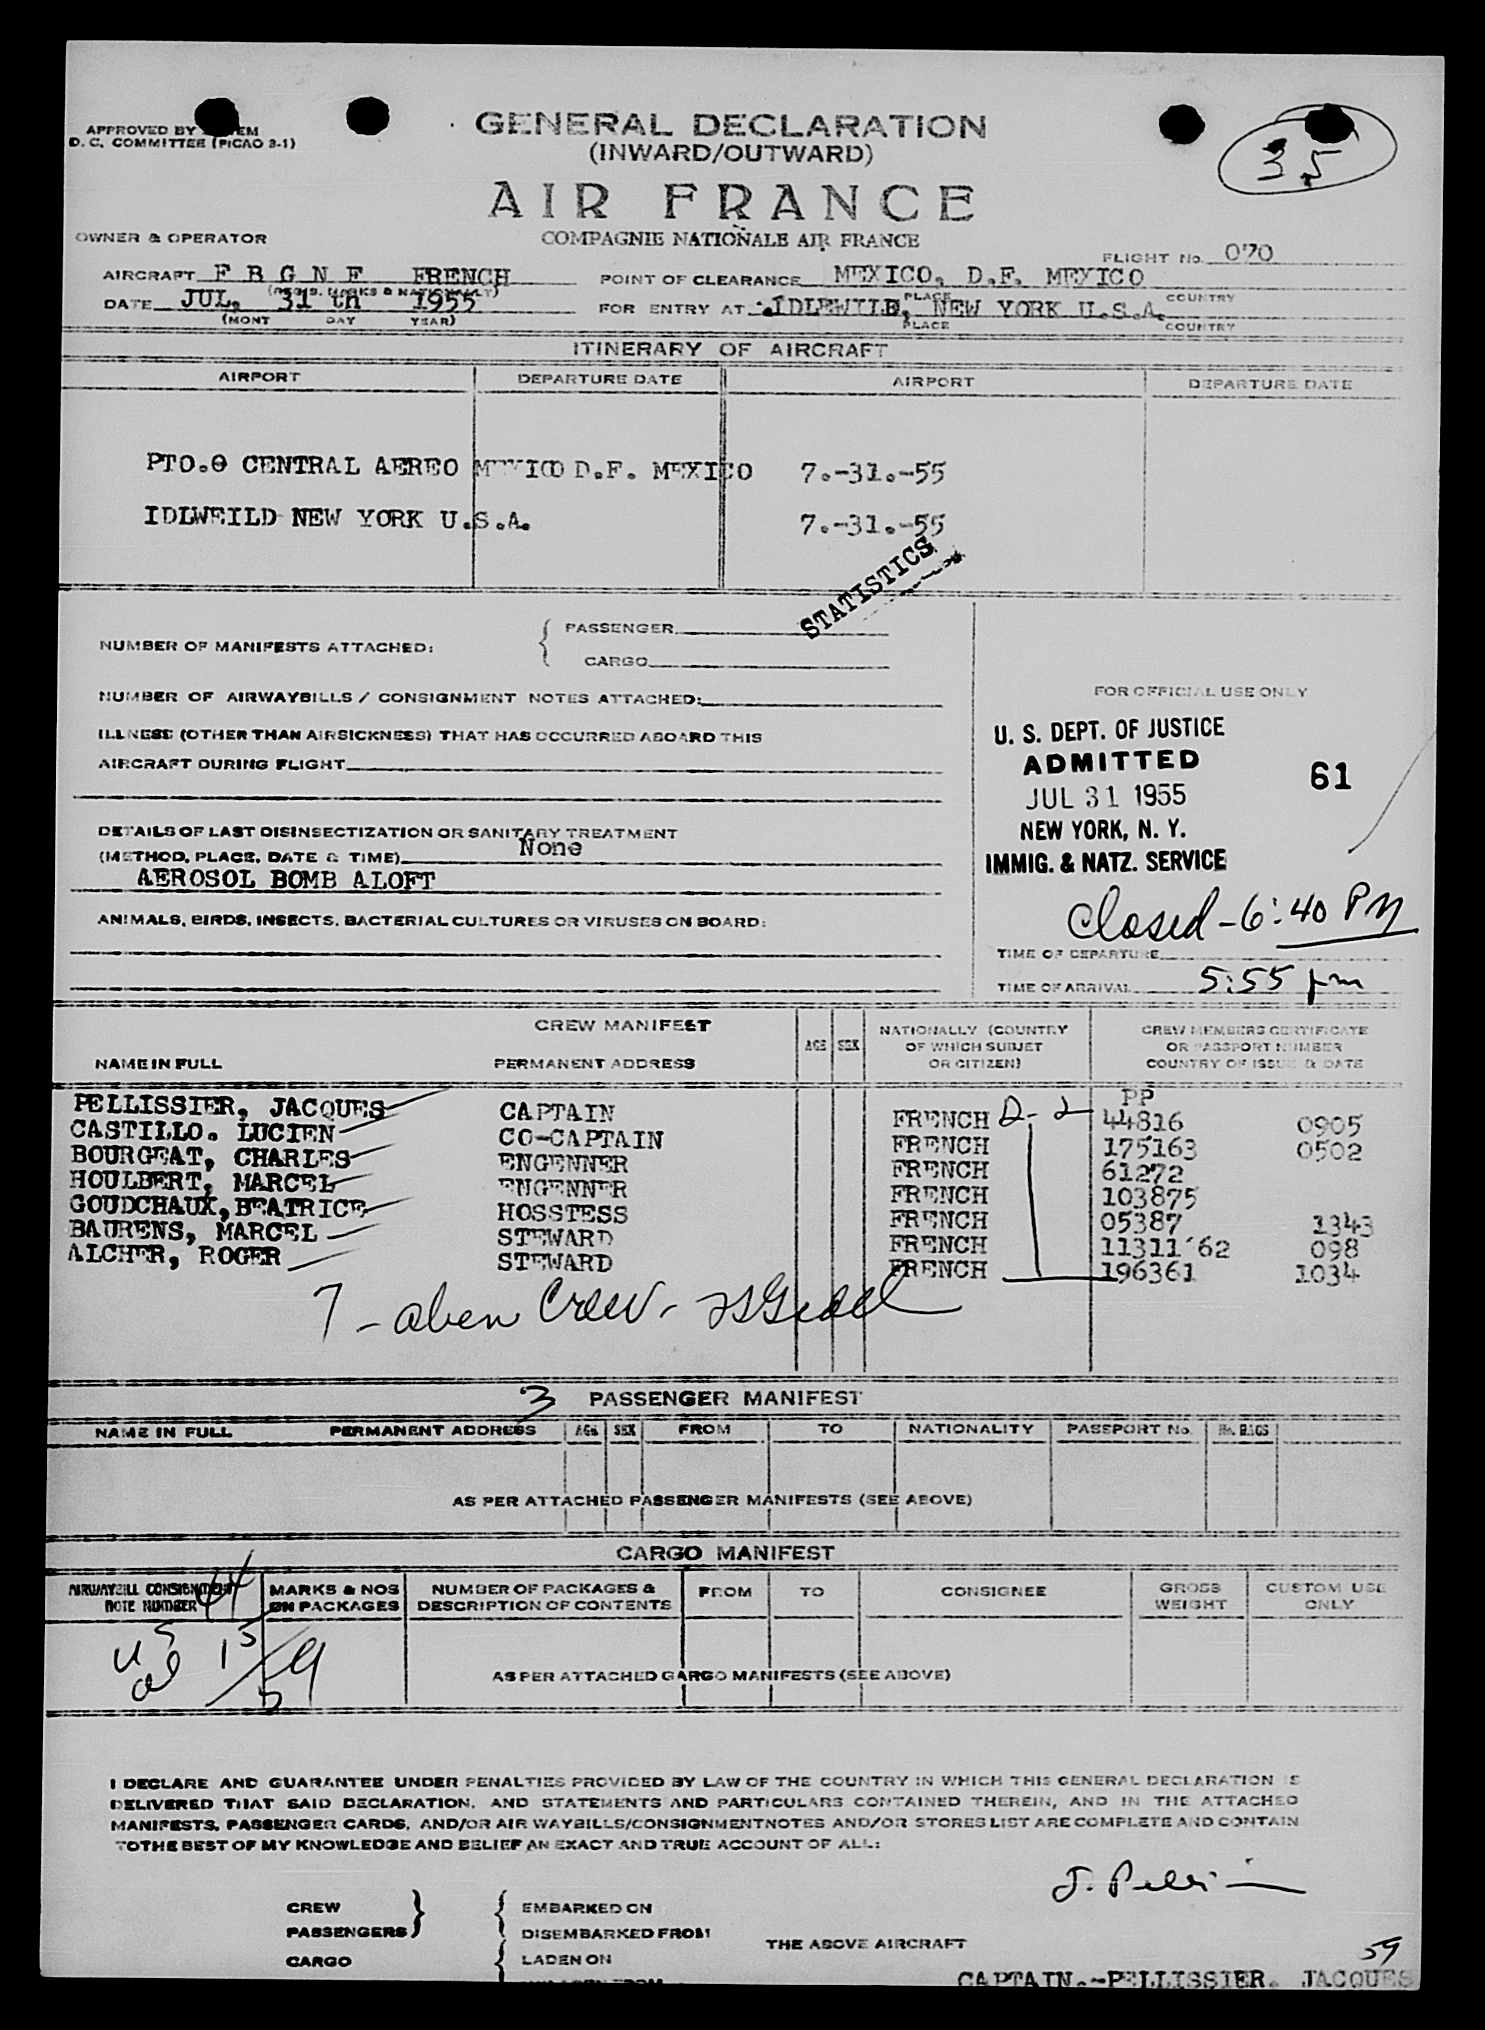 APPROVED BY
D. C. COMMITTEE (PICAO 2-1)
GENERAL DECLARATION
(INWARD/OUTWARD)
35
AIR FRANCE
OWNER & OPERATOR
COMPAGNIE NATIONALE AIR FRANCE
FLIGHT No. 070
AIRCRAFT F B G N F FRENCH
POINT OF CLEARANCE MEXICO, D.F. MEXICO
(REGIS. MARKS & NATIONALITY)
PLACE COUNTRY
DATE JUL. 31 th 1955
FOR ENTRY AT IDLEWILD, NEW YORK U.S.A.
(MONT DAY YEAR)
PLACE COUNTRY
ITINERARY OF AIRCRAFT
AIRPORT DEPARTURE DATE AIRPORT DEPARTURE DATE
PTO.O CENTRAL AEREO MEXICO D.F. MEXICO 7.-31.-55
IDLWEILD NEW YORK U.S.A. 7.-31.-55
STATISTICS
NUMBER OF MANIFESTS ATTACHED:
PASSENGER
CARGO
NUMBER OF AIRWAYBILLS / CONSIGNMENT NOTES ATTACHED:
ILLNESS (OTHER THAN AIRSICKNESS) THAT HAS OCCURRED ABOARD THIS
AIRCRAFT DURING FLIGHT
DETAILS OF LAST DISINSECTIZATION OR SANITARY TREATMENT
(METHOD, PLACE, DATE & TIME) None
AEROSOL BOMB ALOFT
ANIMALS, BIRDS, INSECTS, BACTERIAL CULTURES OR VIRUSES ON BOARD:
FOR OFFICIAL USE ONLY
U. S. DEPT. OF JUSTICE
ADMITTED
61
JUL 31 1955
NEW YORK, N. Y.
IMMIG. & NATZ. SERVICE
Closed - 6:40 PM
TIME OF DEPARTURE
TIME OF ARRIVAL 5:55 pm
CREW MANIFEST
NAME IN FULL
PERMANENT ADDRESS
AGE SEX
NATIONALLY (COUNTRY
OF WHICH SUBJET
OR CITIZEN)
CREW MEMBERS CERTIFICATE
OR PASSPORT NUMBER
COUNTRY OF ISSUE & DATE
PP
PELLISSIER, JACQUES CAPTAIN FRENCH D-2 44816 0905
CASTILLO. LUCIEN CO-CAPTAIN FRENCH 175163 0502
BOURGEAT, CHARLES ENGENNER FRENCH 61272
HOULBERT, MARCEL ENGENNER FRENCH 103875
GOUDCHAUX, BEATRICE HOSSTESS FRENCH 05387 1343
BAURENS, MARCEL STEWARD FRENCH 11311'62 098
AICHER, ROGER STEWARD FRENCH 196361 1034
7 - alien Crew -
3 PASSENGER MANIFEST
NAME IN FULL PERMANENT ADDRESS AGE SEX FROM TO NATIONALITY PASSPORT No. No. BAGS
AS PER ATTACHED PASSENGER MANIFESTS (SEE ABOVE)
CARGO MANIFEST
AIRWAYBILL CONSIGNMENT
NOTE NUMBER
MARKS & NOS
ON PACKAGES
NUMBER OF PACKAGES &
DESCRIPTION OF CONTENTS
FROM TO CONSIGNEE
GROSS
WEIGHT
CUSTOM USE
ONLY
64
US 15
al
59
AS PER ATTACHED CARGO MANIFESTS (SEE ABOVE)
I DECLARE AND GUARANTEE UNDER PENALTIES PROVIDED BY LAW OF THE COUNTRY IN WHICH THIS GENERAL DECLARATION IS
DELIVERED THAT SAID DECLARATION, AND STATEMENTS AND PARTICULARS CONTAINED THEREIN, AND IN THE ATTACHED
MANIFESTS, PASSENGER CARDS, AND/OR AIR WAYBILLS/CONSIGNMENTNOTES AND/OR STORES LIST ARE COMPLETE AND CONTAIN
TOTHE BEST OF MY KNOWLEDGE AND BELIEF AN EXACT AND TRUE ACCOUNT OF ALL:
CREW
PASSENGERS
CARGO
EMBARKED ON
DISEMBARKED FROM
LADEN ON
THE ABOVE AIRCRAFT
59
CAPTAIN.-PELLISSIER. JACQUES